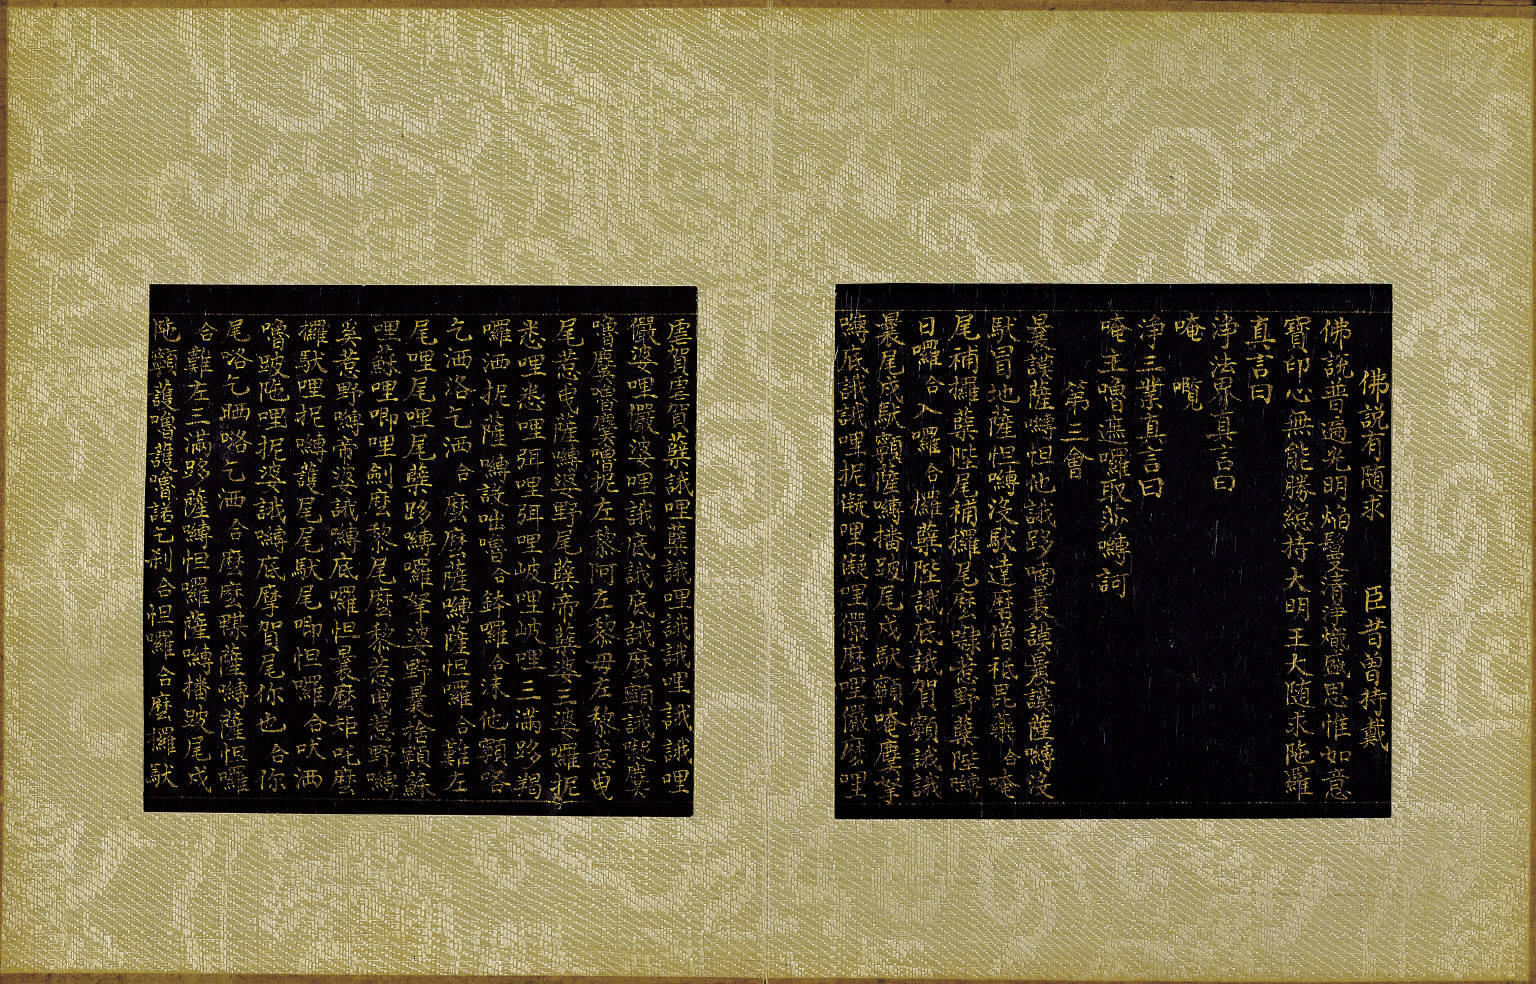 佛說有随求　臣昔曾持戴
佛說普遍光明焰鬘清淨熾盛思惟如意
寶印心無能勝緫持大明王大随求陁羅
真言曰
淨法界真言曰
唵　㘕
淨三業真言曰
唵主嚕盪囉取莎嚩訶
第三會
曩謨薩嚩怛他誐跢喃曩謨曩謨薩嚩沒
馱冒地薩怛嚩沒馱達磨僧秪毘藥合唵
尾補攞蘗陛尾補攞尾麼隷惹野蘗陛嚩
日囉合入囉合攞蘗陛誐底誐賀顙誐誐
曩尾戍馱顙薩嚩播跛尾戍馱顙唵麌拏
嚩底誐誐哩抳凝哩凝哩儼麼哩儼麼哩
虐賀虐賀蘗誐哩蘗誐哩誐誐哩誐誐哩
儼婆哩儼婆哩誐底誐底誐麼顙誐㘈麌
嚕麌嚕麌嚕抳左黎阿左黎母左黎惹曵
尾惹曵薩嚩婆野尾蘗帝蘗婆三婆囉抳
悉哩悉哩弭哩弭哩岐哩岐哩三滿跢羯
囉洒抳薩嚩設咄嚕合鉢囉合沫他顙咯
乞洒洛乞洒合麼麼薩嚩薩怛囉合難左
尾哩尾哩尾蘗跢嚩囉拏婆野曩捨顙蘇
哩蘇哩唧哩劍麼黎尾麼黎惹曵惹野嚩
奚惹野嚩帝婆誐嚩底囉怛曩麼矩吒麼
攞馱哩抳嚩護尾尾馱尾唧怛囉合吠洒
嚕跛陁哩抳婆誐嚩底摩賀尾你也合你
尾咯乞晒咯乞洒合麼麼䫂薩嚩薩怛囉
合難左三滿跢薩嚩怛囉薩嚩播跛尾戍
陁顙護嚕護嚕諾乞刹合怛囉合麼攞馱